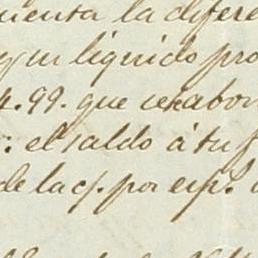 uenta la difere
un liquido pro
4.99. que se abon
: el saldo á tu f
de la c/. por